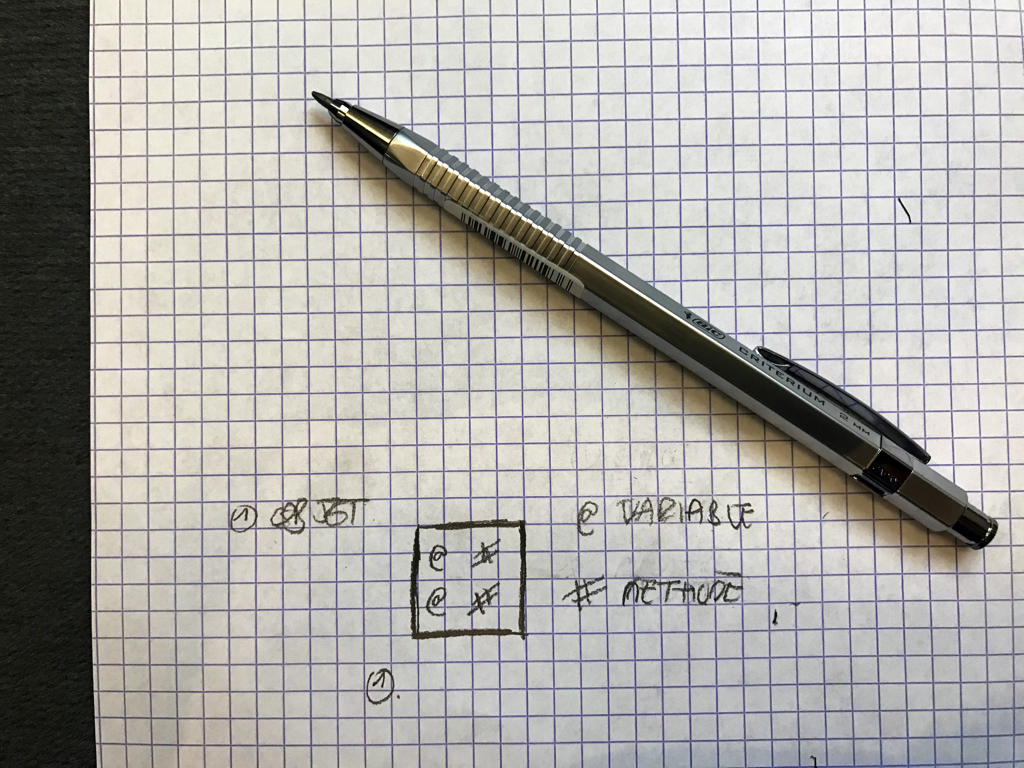 Bic CRITERIUM 2 MM
OBJET
@ VARIABLE
@ #
@ #
# METHODE